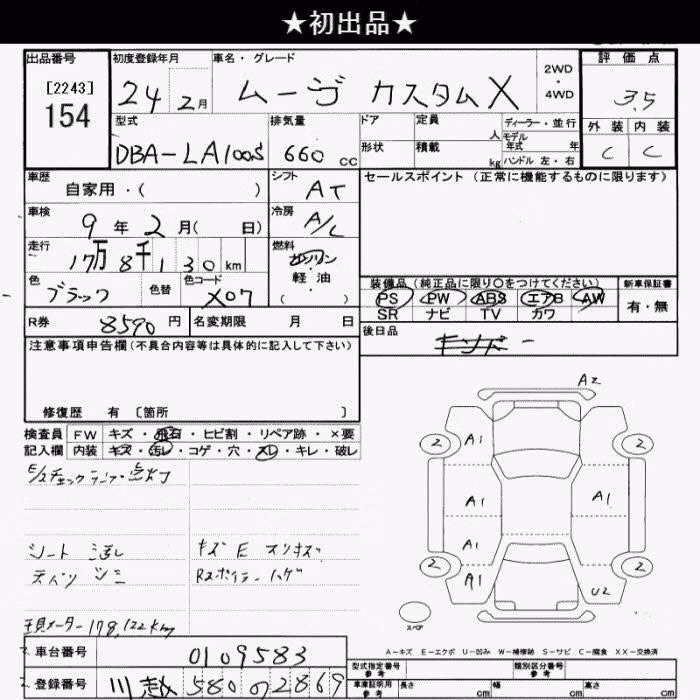 ★初出品★
出品番号
[2243]
154
初度登録年月
24 2月
車名・グレード
ムーヴ カスタムX
2WD
4WD
評価点
3.5
外装 内装
C C
型式
DBA-LA100S
排気量
660 cc
ドア
形状
定員
人
積載
kg
ディーラー・並行
モデル
年式 年
ハンドル 左・右
車歴
自家用・( )
シフト
AT
セールスポイント (正常に機能するものに限ります)
車検
9年2月( 日)
冷房
A/C
走行
17万8千130km
燃料
ガソリン
軽・油
( )
色
ブラック
色替
色コード
X07
装備品(純正品に限り〇をつけてください)
PS PW ABS エアB AW
SR ナビ TV カワ
新車保証書
有・無
R券
8590円
名変期限 月 日
後日品
注意事項申告欄(不具合内容等は具体的に記入して下さい)
修復歴 有 〔箇所 〕
検査員
記入欄
FW キズ・飛石・ヒビ割・リペア跡・×要
内装 キズ・汚レ・コゲ・穴・スレ・キレ・破レ
チェックランプ点灯
シート 汚レ
キズ E スリキズ
Rスポイラーハゲ
メーター178,122km
A2
2 A1 2
A1 A1
A1
2 A1 U2 2
スペア
A-キズ E-エクボ U-凹み W-補修跡 S-サビ C-腐食 XX-交換済
車台番号
0109583
登録番号
川越 580 の 2869
型式指定番号
参考
類別区分番号
参考
車庫証明用
参考
長さ cm
幅 cm
高さ cm